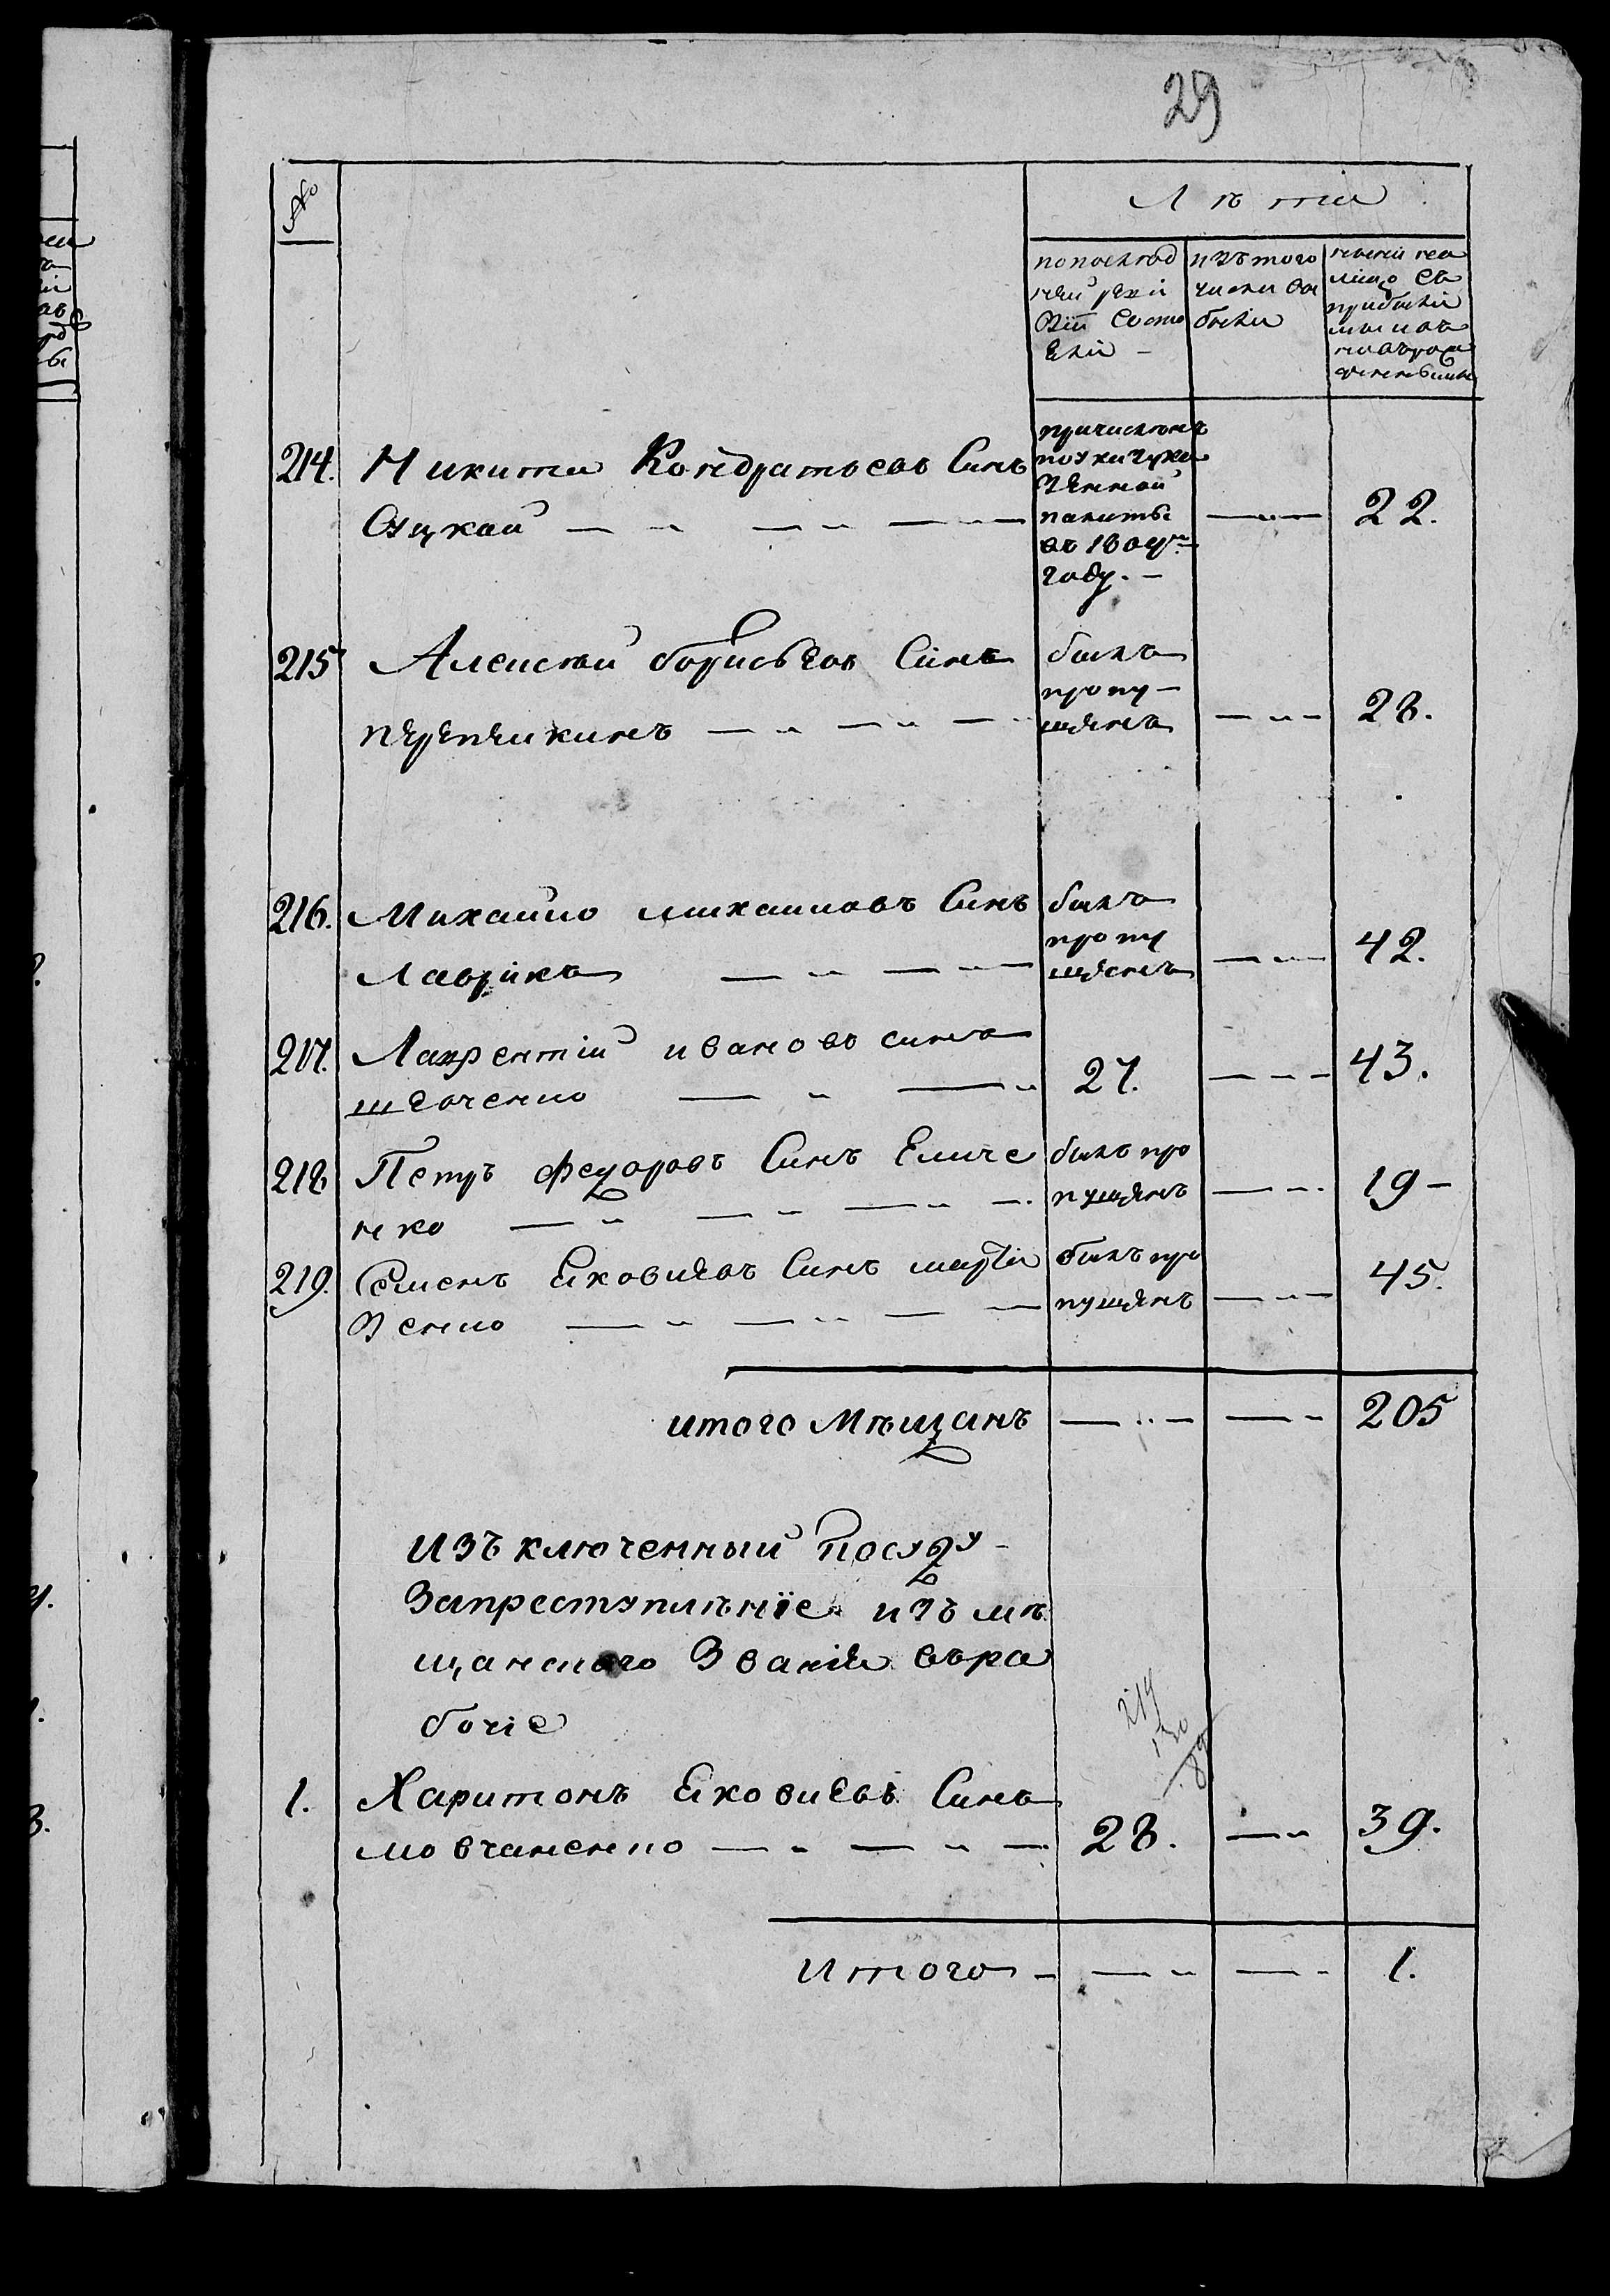 29
№
Лѣта
по послѣд
ней реви
зіи состо
ели
изъ того
числа вы
были
ныне на
лицо съ
прибыли
ми и въ
новърож
денными
214. Никита Кондратьевъ Синъ
Оцкой
причисленъ
по указу ка
зенной
палаты
въ 1804м
году.
22.
215 Алексѣй борисьевъ Синъ
перепечкинъ
былъ
пропу-
щенъ
28.
216. Михайло михаиловъ Синъ
Лаврикъ
былъ
пропу
щенъ
42.
217. Лаврентій ивановъ синъ
шевченко
27.
43.
218 Петръ федоровъ Синъ Емиче
нко
былъ про
пущенъ
19-
219. Семенъ Яковлевъ Синъ марты
зенко
былъ про
пущенъ
45.
итого Мѣщанъ
205
изъключенный посуду
запреступленіе изъ мѣ
щанского званія въра
бочіе
219
130
89
1. Харитонъ Яковлевъ Синъ
мовчаненко
28.
39.
итого
1.